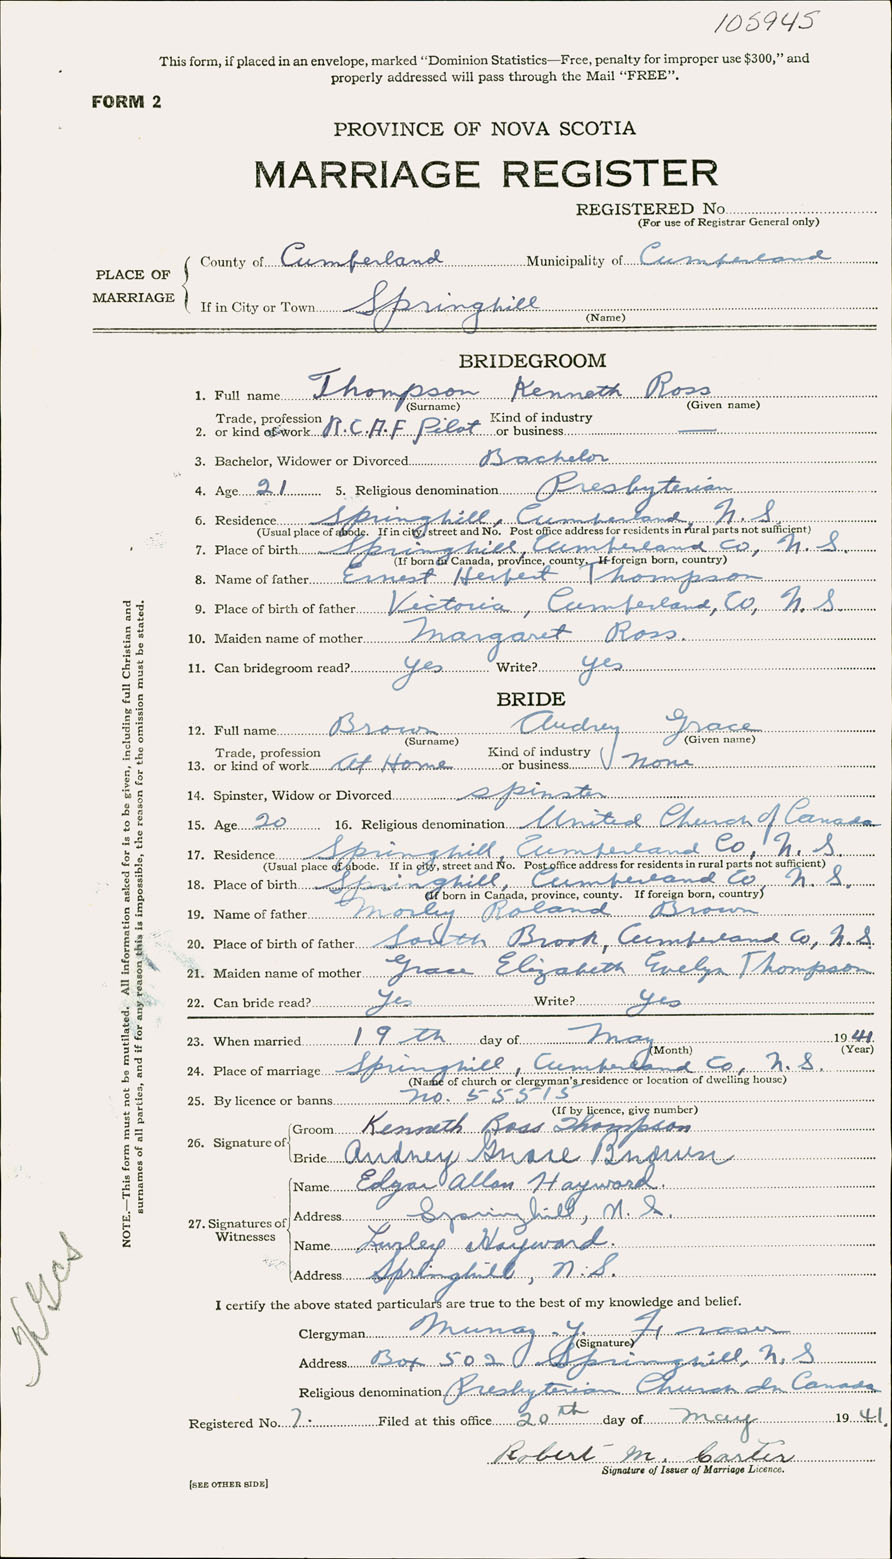 105945
This form, if placed in an envelope, marked "Dominion Statistics—Free, penalty for improper use $300," and
properly addressed will pass through the Mail "FREE".
FORM 2
PROVINCE OF NOVA SCOTIA
MARRIAGE REGISTER
REGISTERED No.
(For use of Registrar General only)
PLACE OF MARRIAGE
County of Cumberland Municipality of Cumberland
If in City or Town Springhill
(Name)
BRIDEGROOM
1. Full name Thompson Kenneth Ross
(Surname) (Given name)
2. Trade, profession or kind of work R.C.A.F Pilot Kind of industry or business —
3. Bachelor, Widower or Divorced Bachelor
4. Age 21 5. Religious denomination Presbyterian
6. Residence Springhill, Cumberland, N.S
(Usual place of abode. If in city, street and No. Post office address for residents in rural parts not sufficient)
7. Place of birth Springhill, Cumberland Co, N.S.
(If born in Canada, province, county. If foreign born, country)
8. Name of father Ernest Herbert Thompson
9. Place of birth of father Victoria, Cumberland, Co, N.S.
10. Maiden name of mother Margaret Ross.
11. Can bridegroom read? yes Write? yes
BRIDE
12. Full name Brown Audrey Grace
(Surname) (Given name)
13. Trade, profession or kind of work At Home Kind of industry or business none
14. Spinster, Widow or Divorced spinster
15. Age 20 16. Religious denomination United Church of Canada
17. Residence Springhill, Cumberland Co, N.S.
(Usual place of abode. If in city, street and No. Post office address for residents in rural parts not sufficient)
18. Place of birth Springhill, Cumberland Co, N.S.
(If born in Canada, province, county. If foreign born, country)
19. Name of father Morley Roland Brown
20. Place of birth of father South Brook, Cumberland Co, N.S.
21. Maiden name of mother Grace Elizabeth Evelyn Thompson
22. Can bride read? Yes Write? yes
23. When married 19th day of May 1941
(Month) (Year)
24. Place of marriage Springhill, Cumberland Co, N.S.
(Name of church or clergyman's residence or location of dwelling house)
25. By licence or banns No. 55515
(If by licence, give number)
26. Signature of
Groom Kenneth Ross Thompson
Bride Audrey Grace Brown
27. Signatures of Witnesses
Name Edgar Allan Hayward.
Address Springhill, N.S.
Name Hayward.
Address Springhill, N.S.
I certify the above stated particulars are true to the best of my knowledge and belief.
Clergyman Murray Y. Fraser
(Signature)
Address Box 502 Springhill, N.S
Religious denomination Presbyterian Church in Canada
Registered No. 7. Filed at this office 20th day of May 1941.
Robert M. Carter
Signature of Issuer of Marriage Licence.
[SEE OTHER SIDE]
NOTE.—This form must not be mutilated. All information asked for is to be given, including full Christian and
surnames of all parties, and if for any reason this is impossible, the reason for the omission must be stated.